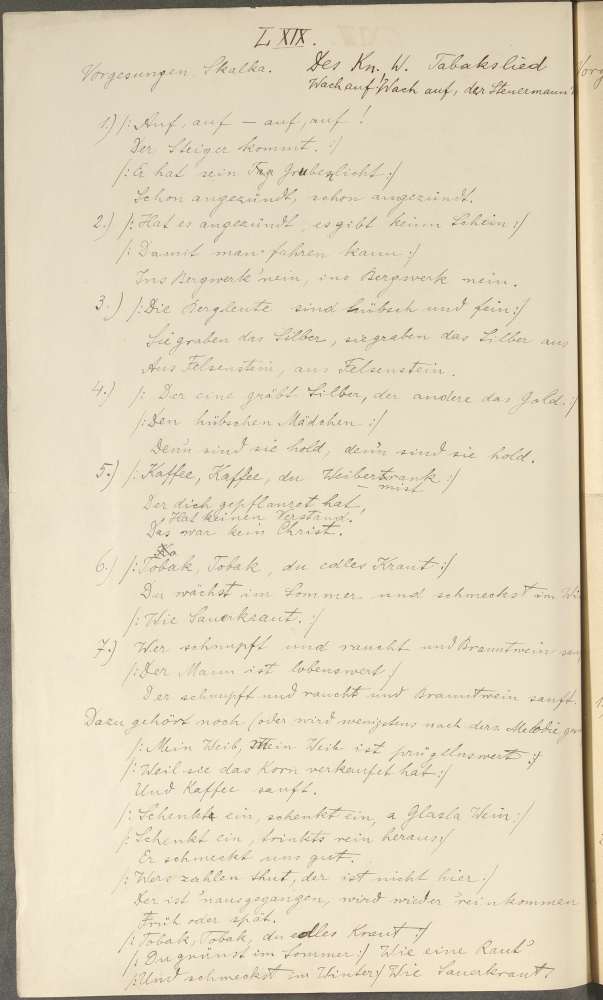 LXIX.
Vorgesungen. Skalka. Des Kn. W. Tabakslied
Wach auf! Wach auf, der Steuermann
1.) /: Auf, auf – auf, auf!
Der Steiger kommt. :/
/: Er hat sein Grubenlicht :/
Schon angezündt, schon angezündt.
2.) /: Hat es angezündt, es gibt keinn Schein :/
/: Damit man fahren kann :/
Ins Bergwerk 'nein, ins Bergwerk nein.
3.) /: Die Bergleute sind hübsch und fein :/
Sie graben das Silber, sie graben das Silber aus
Aus Felsenstein, aus Felsenstein.
4.) /: Der eine gräbt Silber, der andere das Gold :/
/: Den hübschen Mädchen :/
Denn sind sie hold, denn sind sie hold.
5.) /: Kaffee, Kaffee, du Weibertrank :/
– mist
Der dich gepflanzet hat,
Hat keinen Verstand.
Das war kein Christ.
6.) /: Tobak, Tobak, du edles Kraut :/
Du wächst im Sommer und schmeckst im
/: Wie Sauerkraut. :/
7.) Wer schnupft und raucht und Branntwein
/: Der Mann ist lobenswert :/
Der schnupft und raucht und Branntwein sauft.
Dazu gehört noch (oder wird wenigstens nach derr Melodie
/: Mein Weib, mein Weib ist prügelnswert :/
/: Weil sie das Korn verkaufet hat :/
Und Kaffee sauft.
/: Schenkt ein, schenkt ein, a Glasla Wein :/
/: Schenkt ein, trinkts rein heraus :/
Er schmeckt uns gut.
/: Wers zahlen thut, der ist nicht hier :/
Der ist 'nausgegangen, wird wieder 'reinkommen
Früh oder spät.
/: Tobak, Tobak, du edles Kraut :/
/: Du grünst im Sommer :/ Wie eine Raut'
/: Und schmeckst im Winter :/ Wie Sauerkraut!